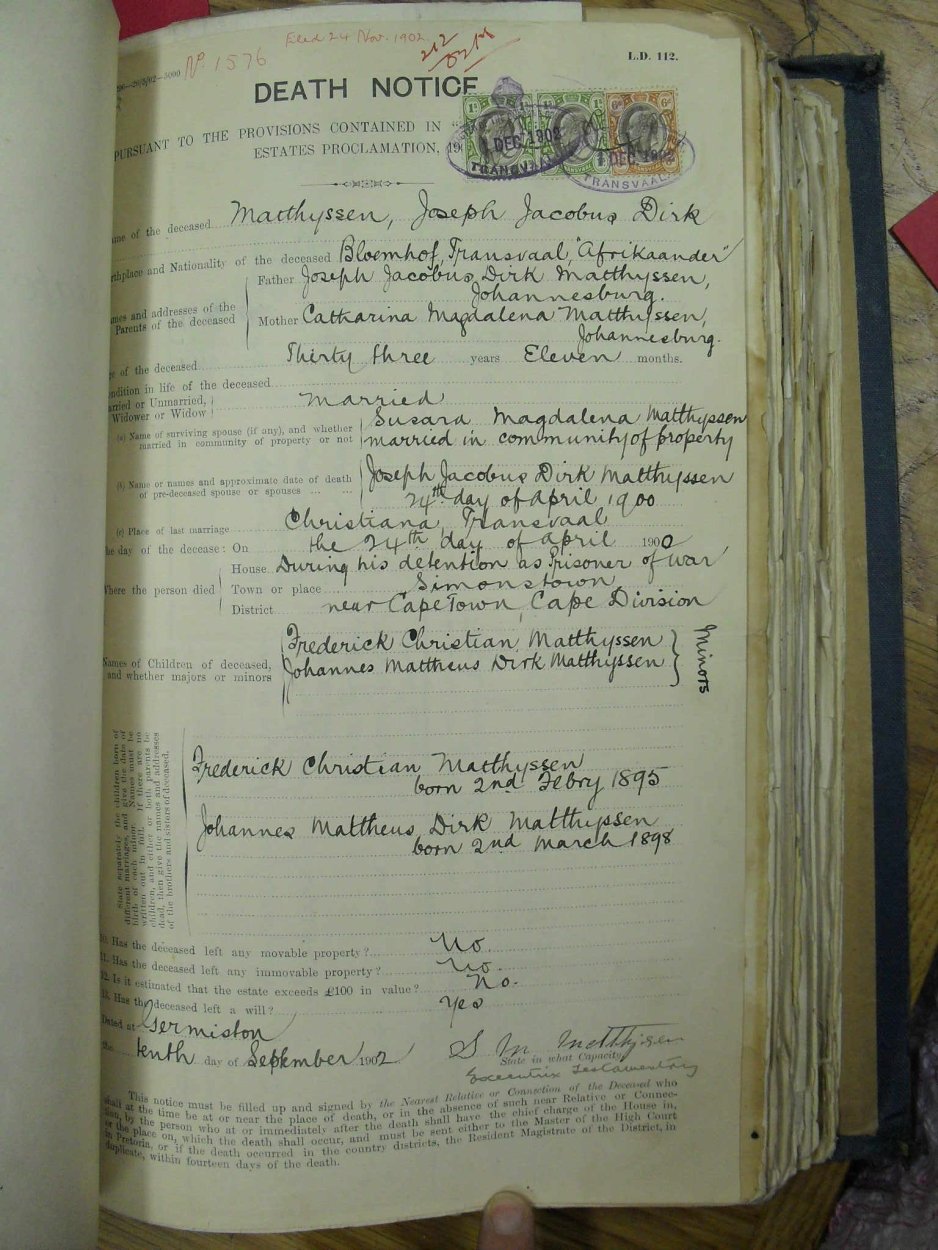 Nº 1576
Filed 24 Nov. 1902.
L.D. 112.
DEATH NOTICE
PURSUANT TO THE PROVISIONS CONTAINED IN "
ESTATES PROCLAMATION, 190
1 DEC 1902
TRANSVAAL
DEC 1902
TRANSVAAL
me of the deceased Matthyssen, Joseph Jacobus Dirk
rthplace and Nationality of the deceased Bloemhof, Transvaal, "Afrikaander"
mes and addresses of the Parents of the deceased
Father Joseph Jacobus Dirk Matthyssen,
Johannesburg.
Mother Catharina Magdalena Matthyssen,
Johannesburg.
e of the deceased Thirty three years Eleven months.
ndition in life of the deceased
arried or Unmarried,
Widower or Widow Married
(a) Name of surviving spouse (if any), and whether Susara Magdalena Matthyssen
married in community of property or not married in community of property
(b) Name or names and approximate date of death Joseph Jacobus Dirk Matthyssen
of pre-deceased spouse or spouses ... ... 24th day of April 1900
(c) Place of last marriage Christiana, Transvaal
he day of the decease: On the 24th day of April 1900
Where the person died
House During his detention as Prisoner of war
Town or place Simonstown
District near Cape Town, Cape Division
Names of Children of deceased, Frederick Christian Matthyssen
and whether majors or minors Johannes Mattheus Dirk Matthyssen
Minors
State separately the children born of
different marriages, and give the date of
birth of each minor. Names must be
written out in full. If there are no
children, and either or both parents be
dead, then give the names and addresses
of the brothers and sisters of deceased.
Frederick Christian Matthyssen
born 2nd Febry 1895
Johannes Mattheus Dirk Matthyssen
born 2nd March 1898
10. Has the deceased left any movable property? No.
11. Has the deceased left any immovable property? No.
12. Is it estimated that the estate exceeds £100 in value? No.
13. Has the deceased left a will? Yes
Dated at Germiston
the tenth day of September 1902
S M Matthysen
State in what Capacity
Executrix Testamentary
This notice must be filled up and signed by the Nearest Relative or Connection of the Deceased who
shall at the time be at or near the place of death, or in the absence of such near Relative or Connec-
tion, by the person who at or immediately after the death shall have the chief charge of the House in,
or the place on, which the death shall occur, and must be sent either to the Master of the High Court
in Pretoria, or if the death occurred in the country districts, the Resident Magistrate of the District, in
duplicate, within fourteen days of the death.